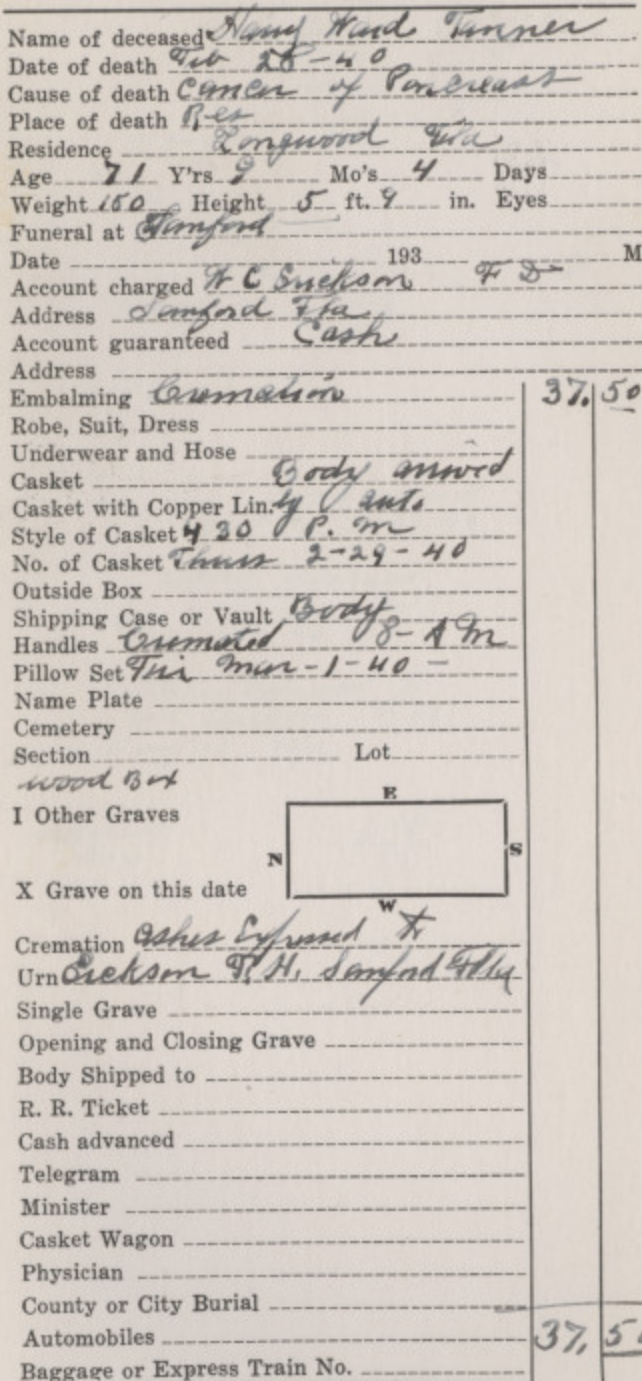 Name of deceased Harry Ward Tanner
Date of death Feb 28-40
Cause of death Cancer of Pancreast
Place of death Res
Residence Longwood Fla
Age 71 Y'rs 9 Mo's 4 Days
Weight 150 Height 5 ft. 9 in. Eyes
Funeral at Sanford
Date 193 M
Account charged W C Erickson F D
Address Sanford Fla
Account guaranteed Cash
Address
Embalming Cremation 37.50
Robe, Suit, Dress
Underwear and Hose
Casket Body arrived
Casket with Copper Lin. by auto
Style of Casket 4 30 P. m
No. of Casket Thurs 2-29-40
Outside Box
Shipping Case or Vault Body
Handles Cremated 8- A m
Pillow Set Fri Mar-1-40-
Name Plate
Cemetery
Section Lot
wood Box
E
I Other Graves
N S
X Grave on this date
W
Cremation Ashes Expressed to
Urn Erickson F. H. Sanford Fla
Single Grave
Opening and Closing Grave
Body Shipped to
R. R. Ticket
Cash advanced
Telegram
Minister
Casket Wagon
Physician
County or City Burial
Automobiles 37, 50
Baggage or Express Train No.